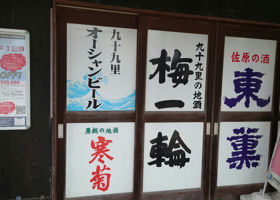 九十九里
オーシャンビール
九十九里の地酒
梅一輪
佐原の酒
東薫
房総の地酒
寒菊
3日間
OFF!